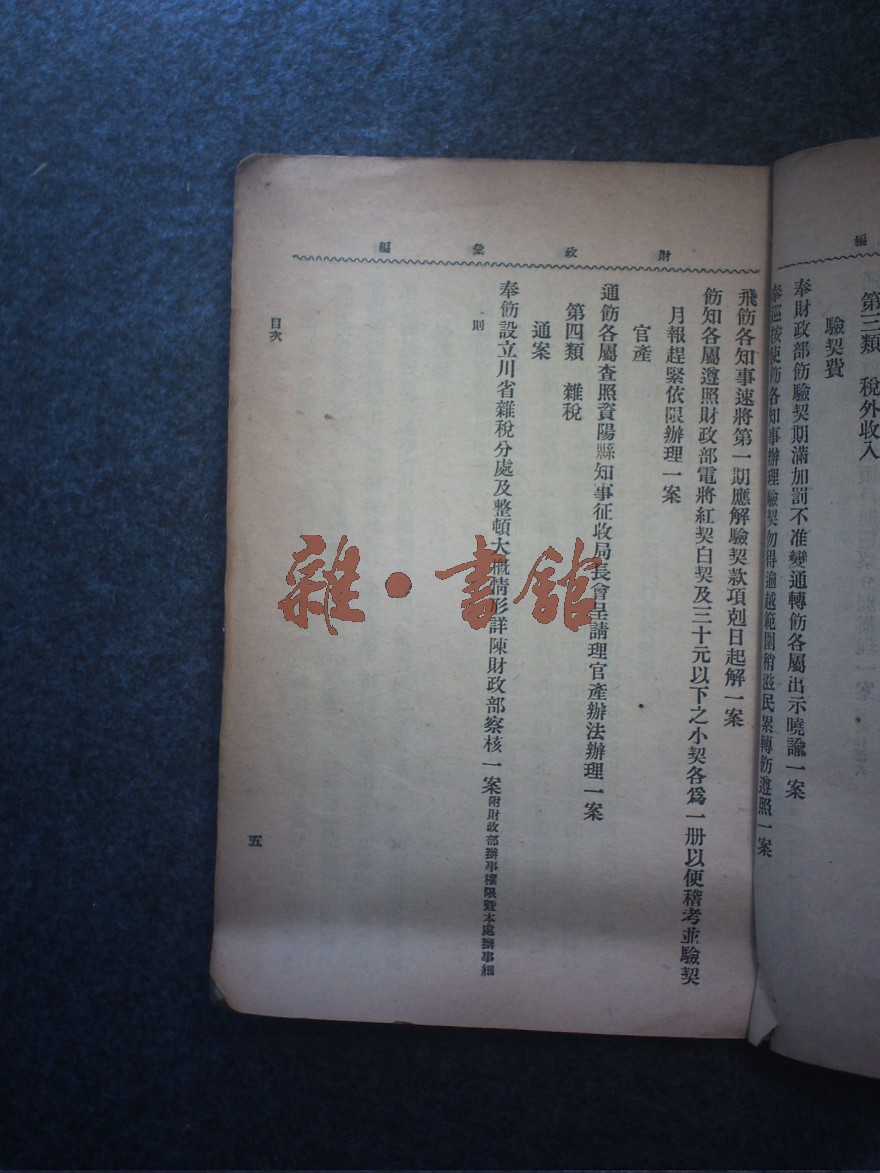 編
第三類　稅外收入
驗契費
奉財政部飭驗契期滿加罰不准變通轉飭各屬出示曉諭一案
奉巡按使飭各知事辦理驗契勿得逾越範圍稍滋民累轉飭遵照一案
財政彙編
飛飭各知事速將第一期應解驗契款項剋日起解一案
飭知各屬遵照財政部電將紅契白契及三十元以下之小契各爲一册以便稽考並驗契
月報趕緊依限辦理一案
官產
通飭各屬查照資陽縣知事征收局長會呈請理官產辦法辦理一案
第四類　雜稅
通案
奉飭設立川省雜稅分處及整頓大概情形詳陳財政部察核一案附財政部辦事權限暨本處辦事細
則
目次
五
雜·書館